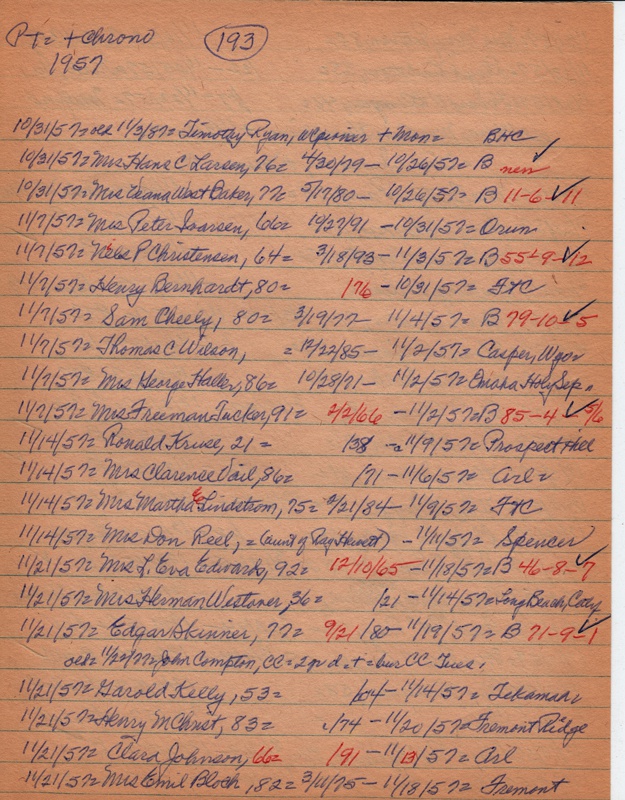 Pt= + Chrono 193
1957
10/31/57= 11/3/87= Timothy Ryan, + Mon= BHC
10/31/57= Mrs Hans C Larsen, 76= 4/30/79 - 10/26/57= B new ✓
10/31/57= Mrs Leana West Baker, 77= 5/17/80 - 10/26/57= B 11-6-11 ✓
11/7/57= Mrs Peter Iversen, 66= 10/27/91 - 10/31/57= Orum
11/7/57= Niels P Christensen, 64= 3/18/93 - 11/3/57= B 55-9-12 ✓
11/7/57= Henry Bernhardt, 80= 176 - 10/31/57= FtC
11/7/57= Sam Cheely, 80= 3/19/77 - 11/4/57= B 79-10-5 ✓
11/7/57= Thomas C Wilson, = 12/22/85 - 11/2/57= Casper, Wyo=
11/7/57= Mrs George Haller, 86= 10/28/71 - 11/2/57= Omaha Holy Sep=
11/7/57= Mrs Freeman Tucker, 91= 2/2/66 - 11/2/57= B 85-4-5/6 ✓
11/14/57= Ronald Kruse, 21= /38 - 11/9/57= Prospect Hill
11/14/57= Mrs Clarence Vail, 86= /71 - 11/6/57= Arl=
11/14/57= Mrs Martha E Lindstrom, 75= 2/21/84 - 11/9/57= FtC
11/14/57= Mrs Don Reel, = (aunt of Ray Hewett) - 11/11/57= Spencer
11/21/57= Mrs L Eva Edwards, 92= 12/10/65 - 11/18/57= B 46-8-7 ✓
11/21/57= Mrs Herman Westover, 36= /21 - 11/14/57= Long Beach,
11/21/57= Edgar Skinner, 77= 9/21/80 - 11/19/57= B 71-9-1 ✓
11/22/77= John Compton, CC=
11/21/57= Harold Kelly, 53= /04 - 11/14/57= Tekamah=
11/21/57= Henry M Christ, 83= /74 - 11/20/57= Fremont Ridge
11/21/57= Clara Johnson, 66= /91 - 11/13/57= Arl
11/21/57= Mrs Emil Bloch, 82= 3/11/75 - 11/18/57= Fremont